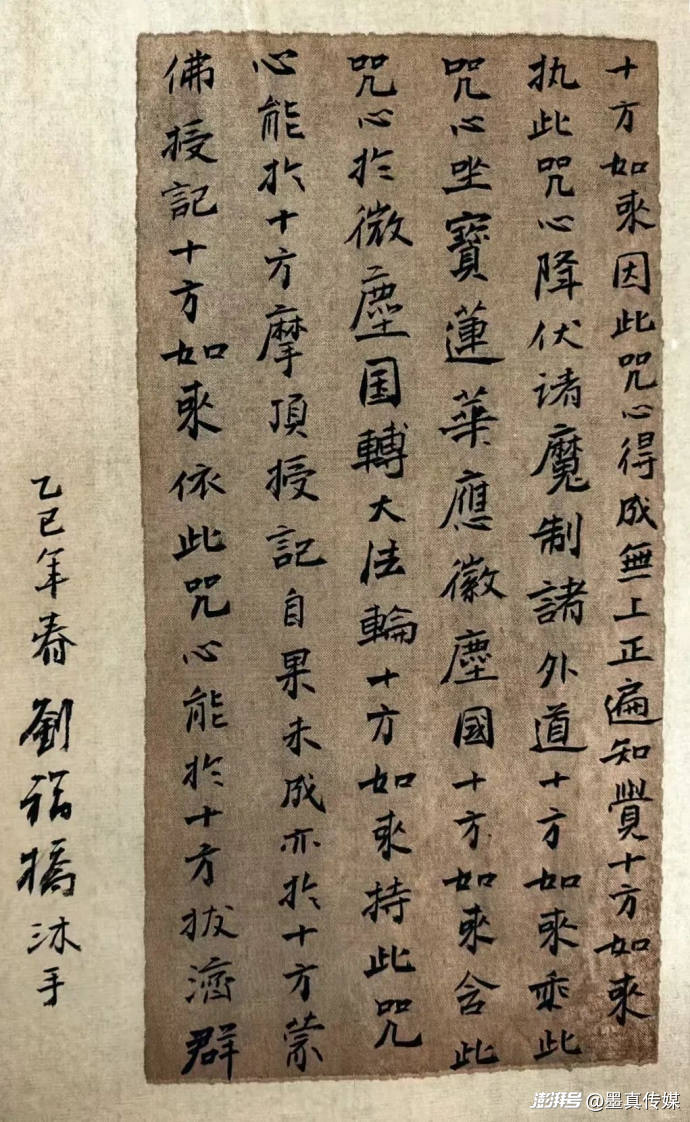 十方如來因此咒心得成無上正遍知覺十方如來
执此咒心降伏诸魔制諸外道十方如來乘此
咒心坐寶蓮華應微塵國十方如來含此
咒心於微塵国轉大法輪十方如來持此咒
心能於十方摩頂授記自果未成亦於十方蒙
佛授記十方如來依此咒心能於十方拔濟群
乙巳年春劉福橋沐手
澎湃号@墨真传媒